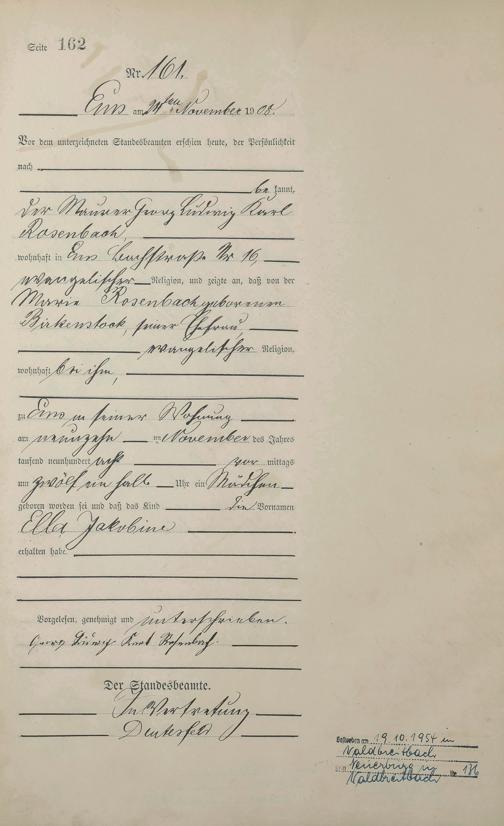 Seite 162
Nr. 161.
Ems am 21ten November 1908.
Vor dem unterzeichneten Standesbeamten erschien heute, der Persönlichkeit
nach
be kannt,
der Maurer Georg Ludwig Karl
Rosenbach,
wohnhaft in Ems Bachstraße Nr 16,
evangelischer Religion, und zeigte an, daß von der
Marie Rosenbach geborenen
Birkenstock, seiner Ehefrau,
evangelischer Religion,
wohnhaft bei ihm,
zu Ems in seiner Wohnung
am neunzehn ten November des Jahres
tausend neunhundert acht vor mittags
um zwölf ein halb Uhr ein Mädchen
geboren worden sei und daß das Kind die Vornamen
Ella Jakobine
erhalten habe.
Vorgelesen, genehmigt und unterschrieben.
Georg Ludwig Karl Rosenbach.
Der Standesbeamte.
In Vertretung
Deutesfeld
Gestorben am 19.10.1954 in
Waldbreitbach
Neuerburg in
Waldbreitbach Nr 176